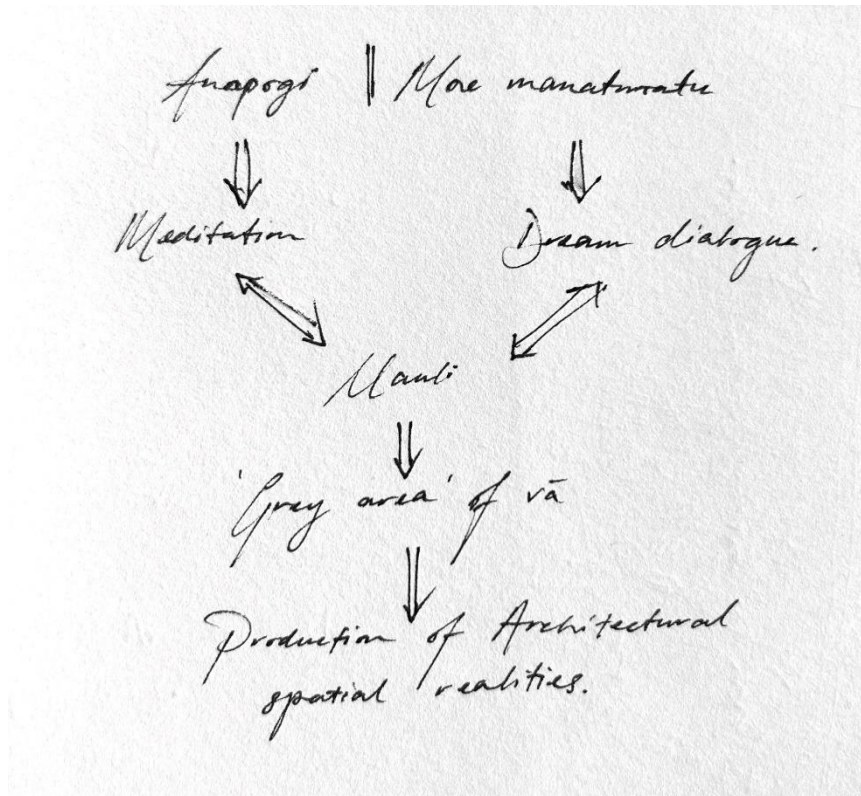 Anapogi || Moe manatunatu
Meditation Dream dialogue.
Mauli
'Grey area' of vā
Production of Architectural
spatial realities.